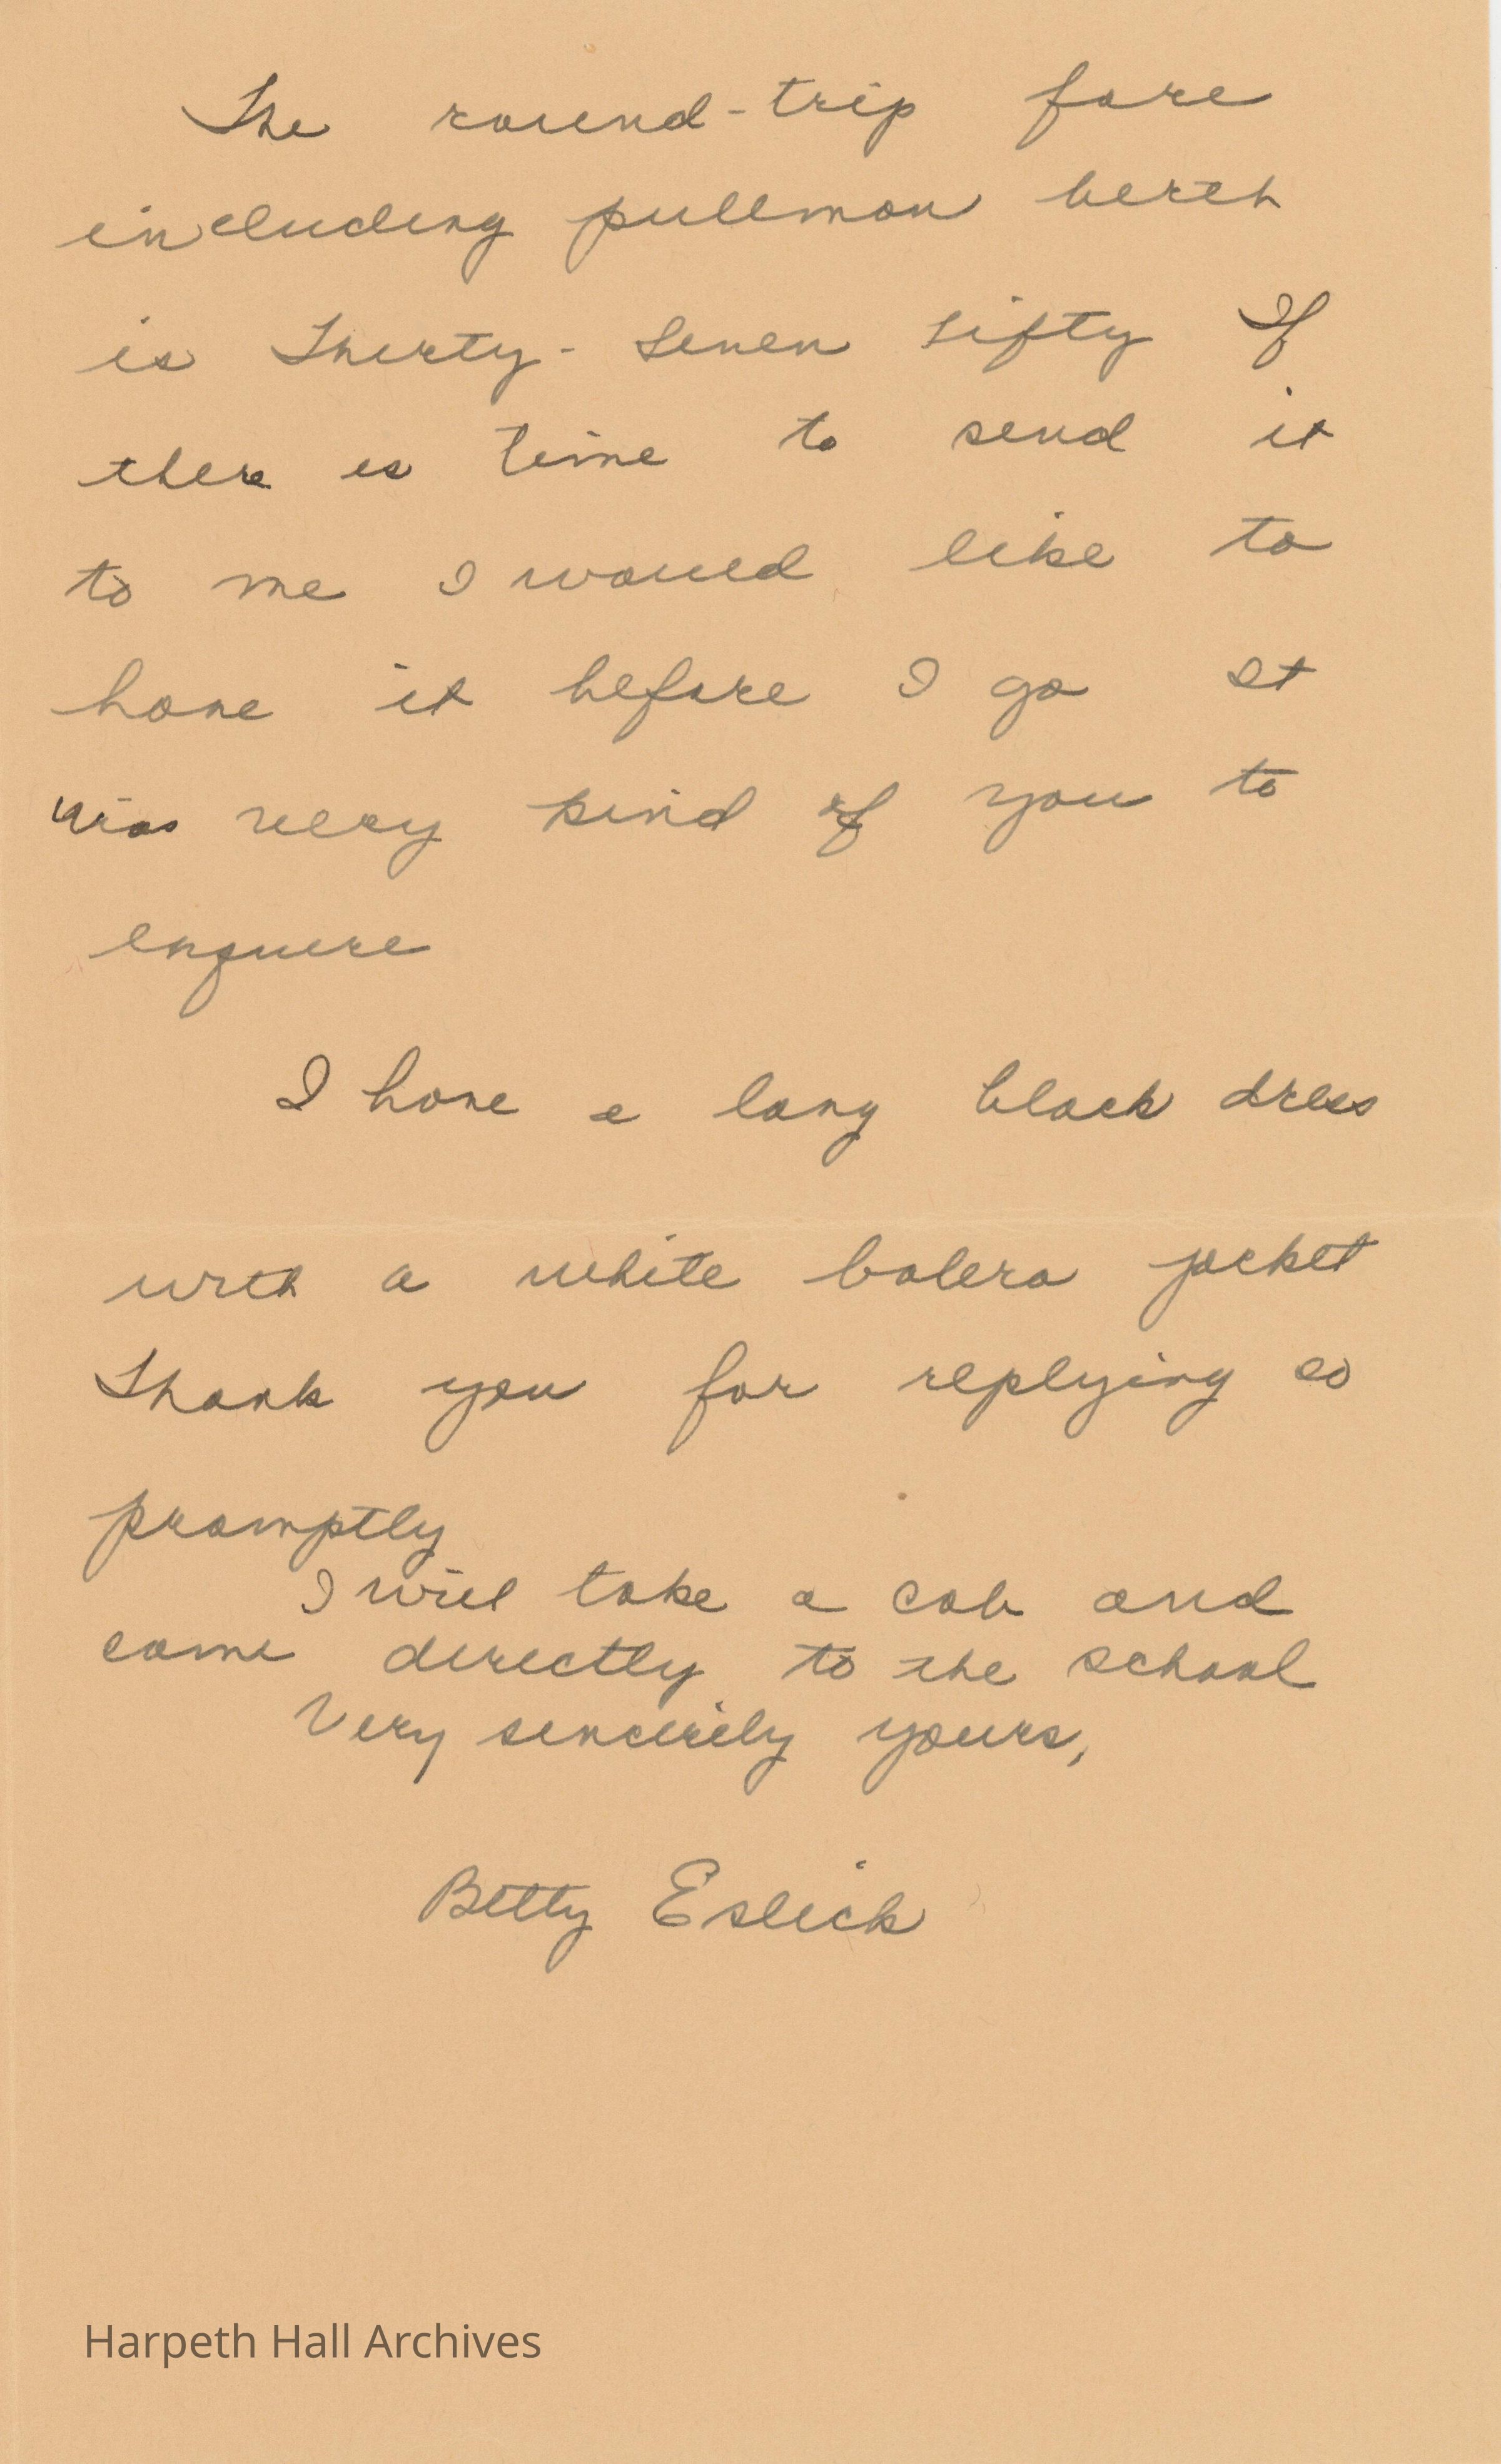 The round-trip fare
including pullman berth
is Thirty-Seven fifty If
there is time to send it
to me I would like to
have it before I go It
was very kind of you to
enquire
I have a long black dress
with a white bolero jacket
Thank you for replying so
promptly
I will take a cab and
come directly to the school
Very sincerely yours,
Betty Eslick
Harpeth Hall Archives